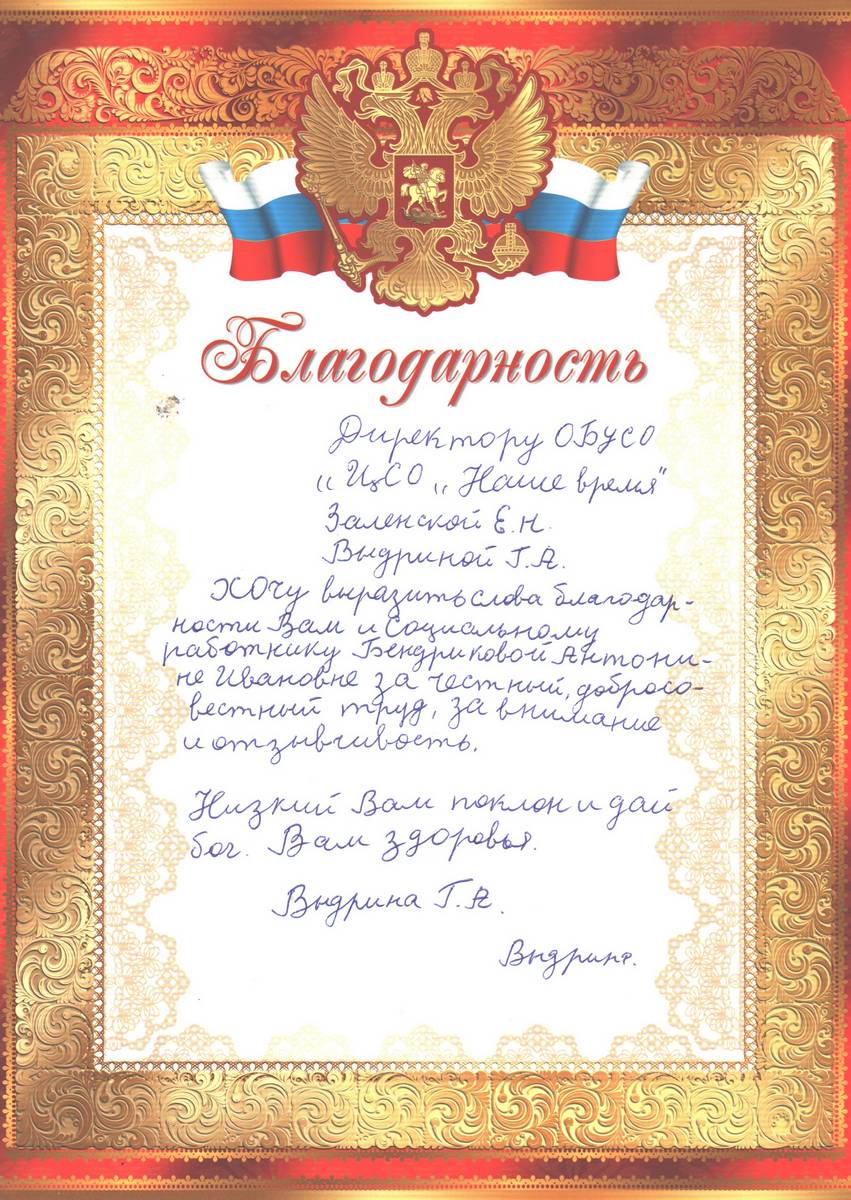 Благодарность
Директору ОБУСО
„ ЦСО „ Наше время"
Заленской Е.Н.
Выдриной Г.А.
Хочу выразить слова благодар-
ности Вам и Социальному
работнику Бендриковой Антони-
не Ивановне за честный, добросо-
вестный труд, за внимание
и отзывчивость.
Низкий Вам поклон и дай
бог. Вам здоровья.
Выдрина Г.А.
Выдрина.